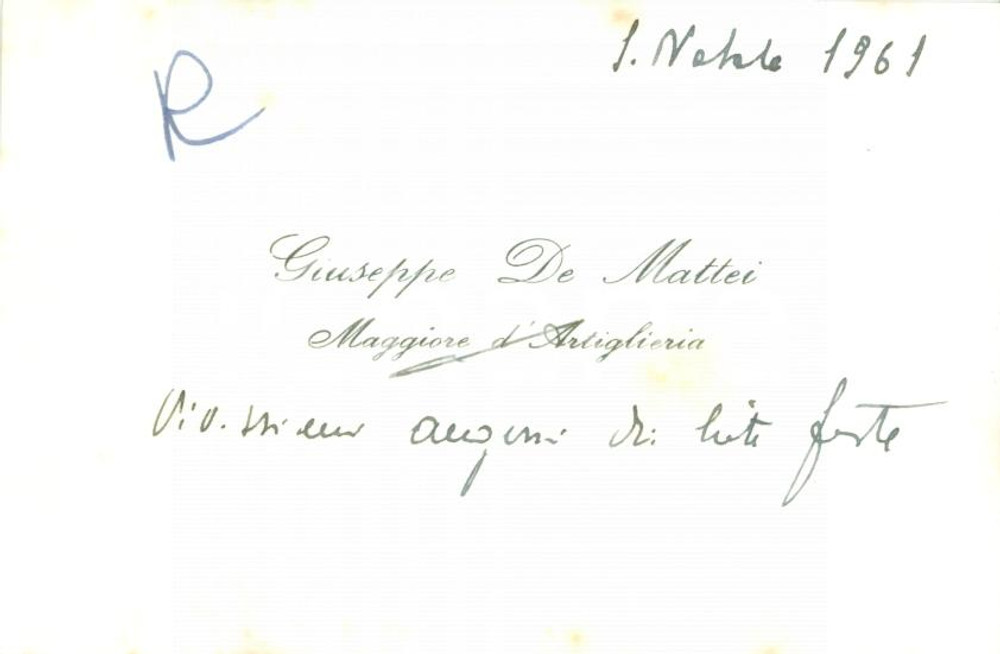 S. Natale 1961
R
Giuseppe De Mattei
Maggiore d'Artiglieria
Vivissimi auguri di liete feste